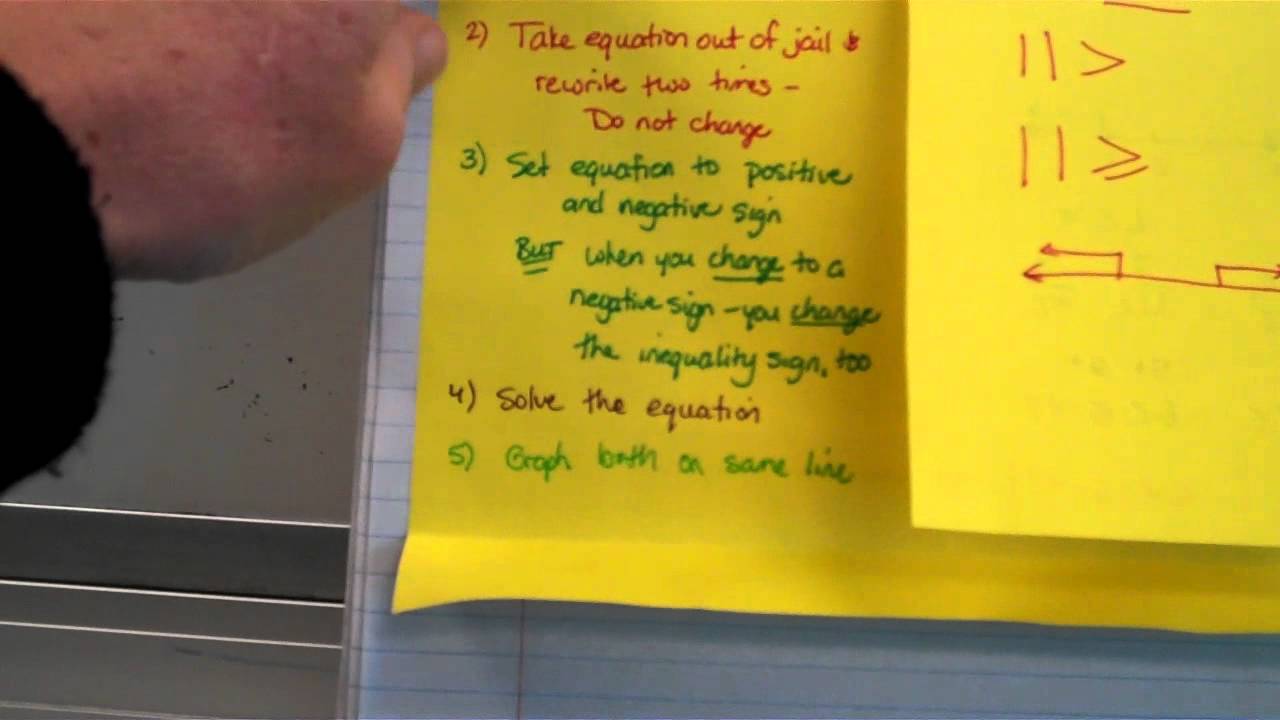 2) Take equation out of jail &
rewrite two times -
Do not change
3) Set equation to positive
and negative sign
BUT when you change to a
negative sign - you change
the inequality sign, too
4) Solve the equation
5) Graph both on same line
| | >
| | ≥